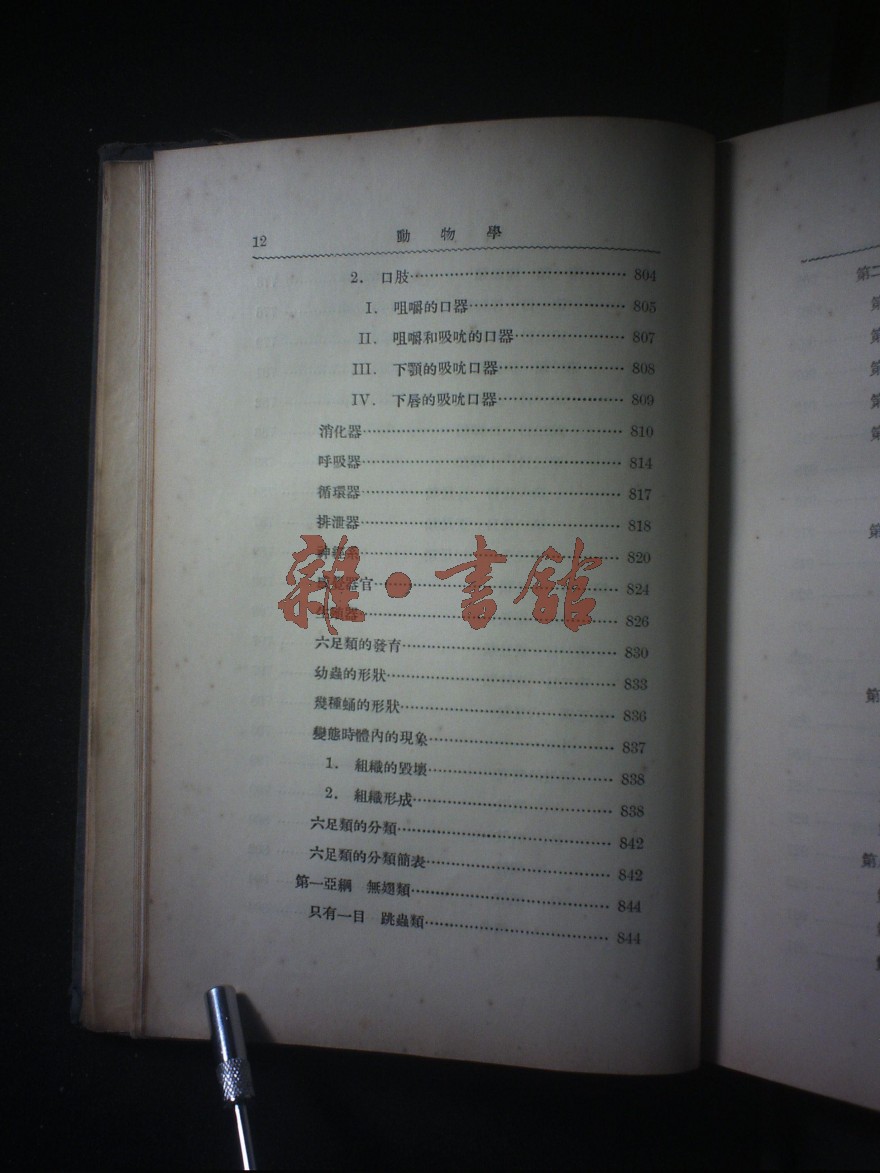 12 動物學
2. 口肢 804
I. 咀嚼的口器 805
II. 咀嚼和吸吮的口器 807
III. 下顎的吸吮口器 808
IV. 下唇的吸吮口器 809
消化器 810
呼吸器 814
循環器 817
排泄器 818
神經系 820
器官 824
生殖器 826
六足類的發育 830
幼蟲的形狀 833
幾種蛹的形狀 836
變態時體內的現象 837
1. 組織的毀壞 838
2. 組織形成 838
六足類的分類 842
六足類的分類簡表 842
第一亞綱 無翅類 844
只有一目 跳蟲類 844
雜·書館
第二
第
第
第
第
第
第
第
第